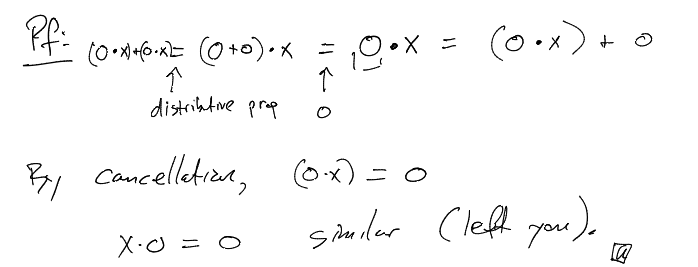 Pf: (0·x)+(0·x)= (0+0)·x = 0·x = (0·x) + 0
↑ ↑
distributive prop 0
By cancellation, (0·x) = 0
x·0 = 0 similar (left you).